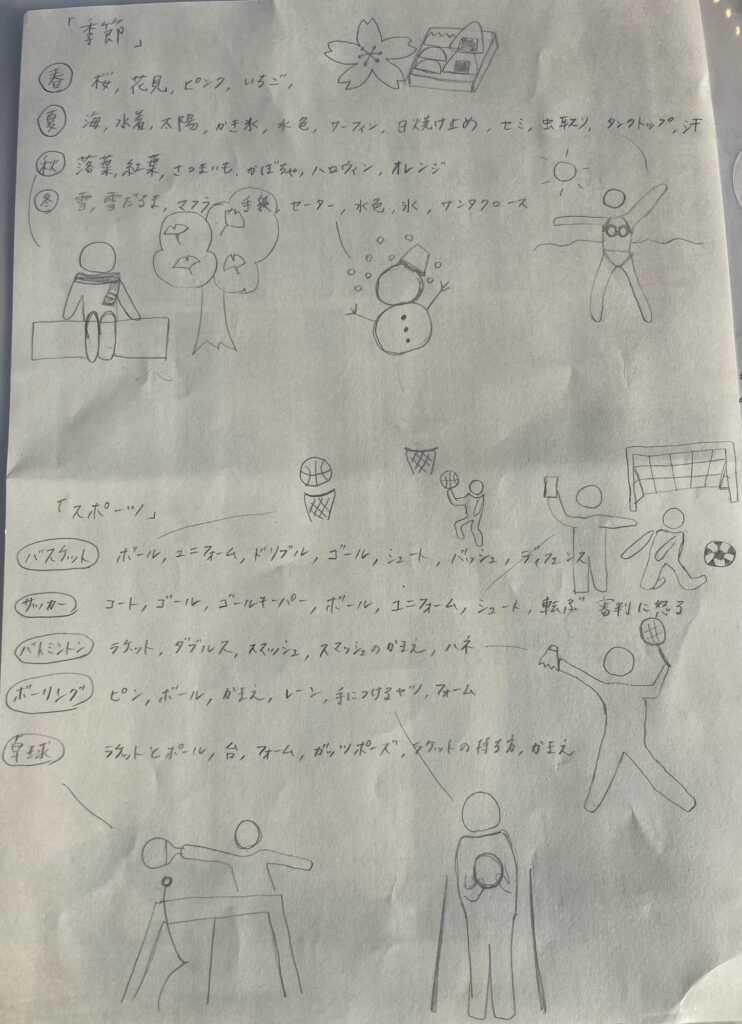 「季節」
春 桜, 花見, ピンク, いちご,
夏 海, 水着, 太陽, かき氷, 水色, サーフィン, 日焼け止め, セミ, 虫取り, タンクトップ, 汗
秋 落葉, 紅葉, さつまいも, かぼちゃ, ハロウィン, オレンジ
冬 雪, 雪だるま, マフラー, 手袋, セーター, 水色, 氷, サンタクロース
「スポーツ」
バスケット ボール, ユニフォーム, ドリブル, ゴール, シュート, バッシュ, ディフェンス
サッカー コート, ゴール, ゴールキーパー, ボール, ユニフォーム, シュート, 転ぶ 審判に怒る
バトミントン ラケット, ダブルス, スマッシュ, スマッシュのかまえ, ハネ
ボーリング ピン, ボール, かまえ, レーン, 手につけるヤツ, フォーム
卓球 ラケットとボール, 台, フォーム, ガッツポーズ, ラケットの持ち方, かまえ